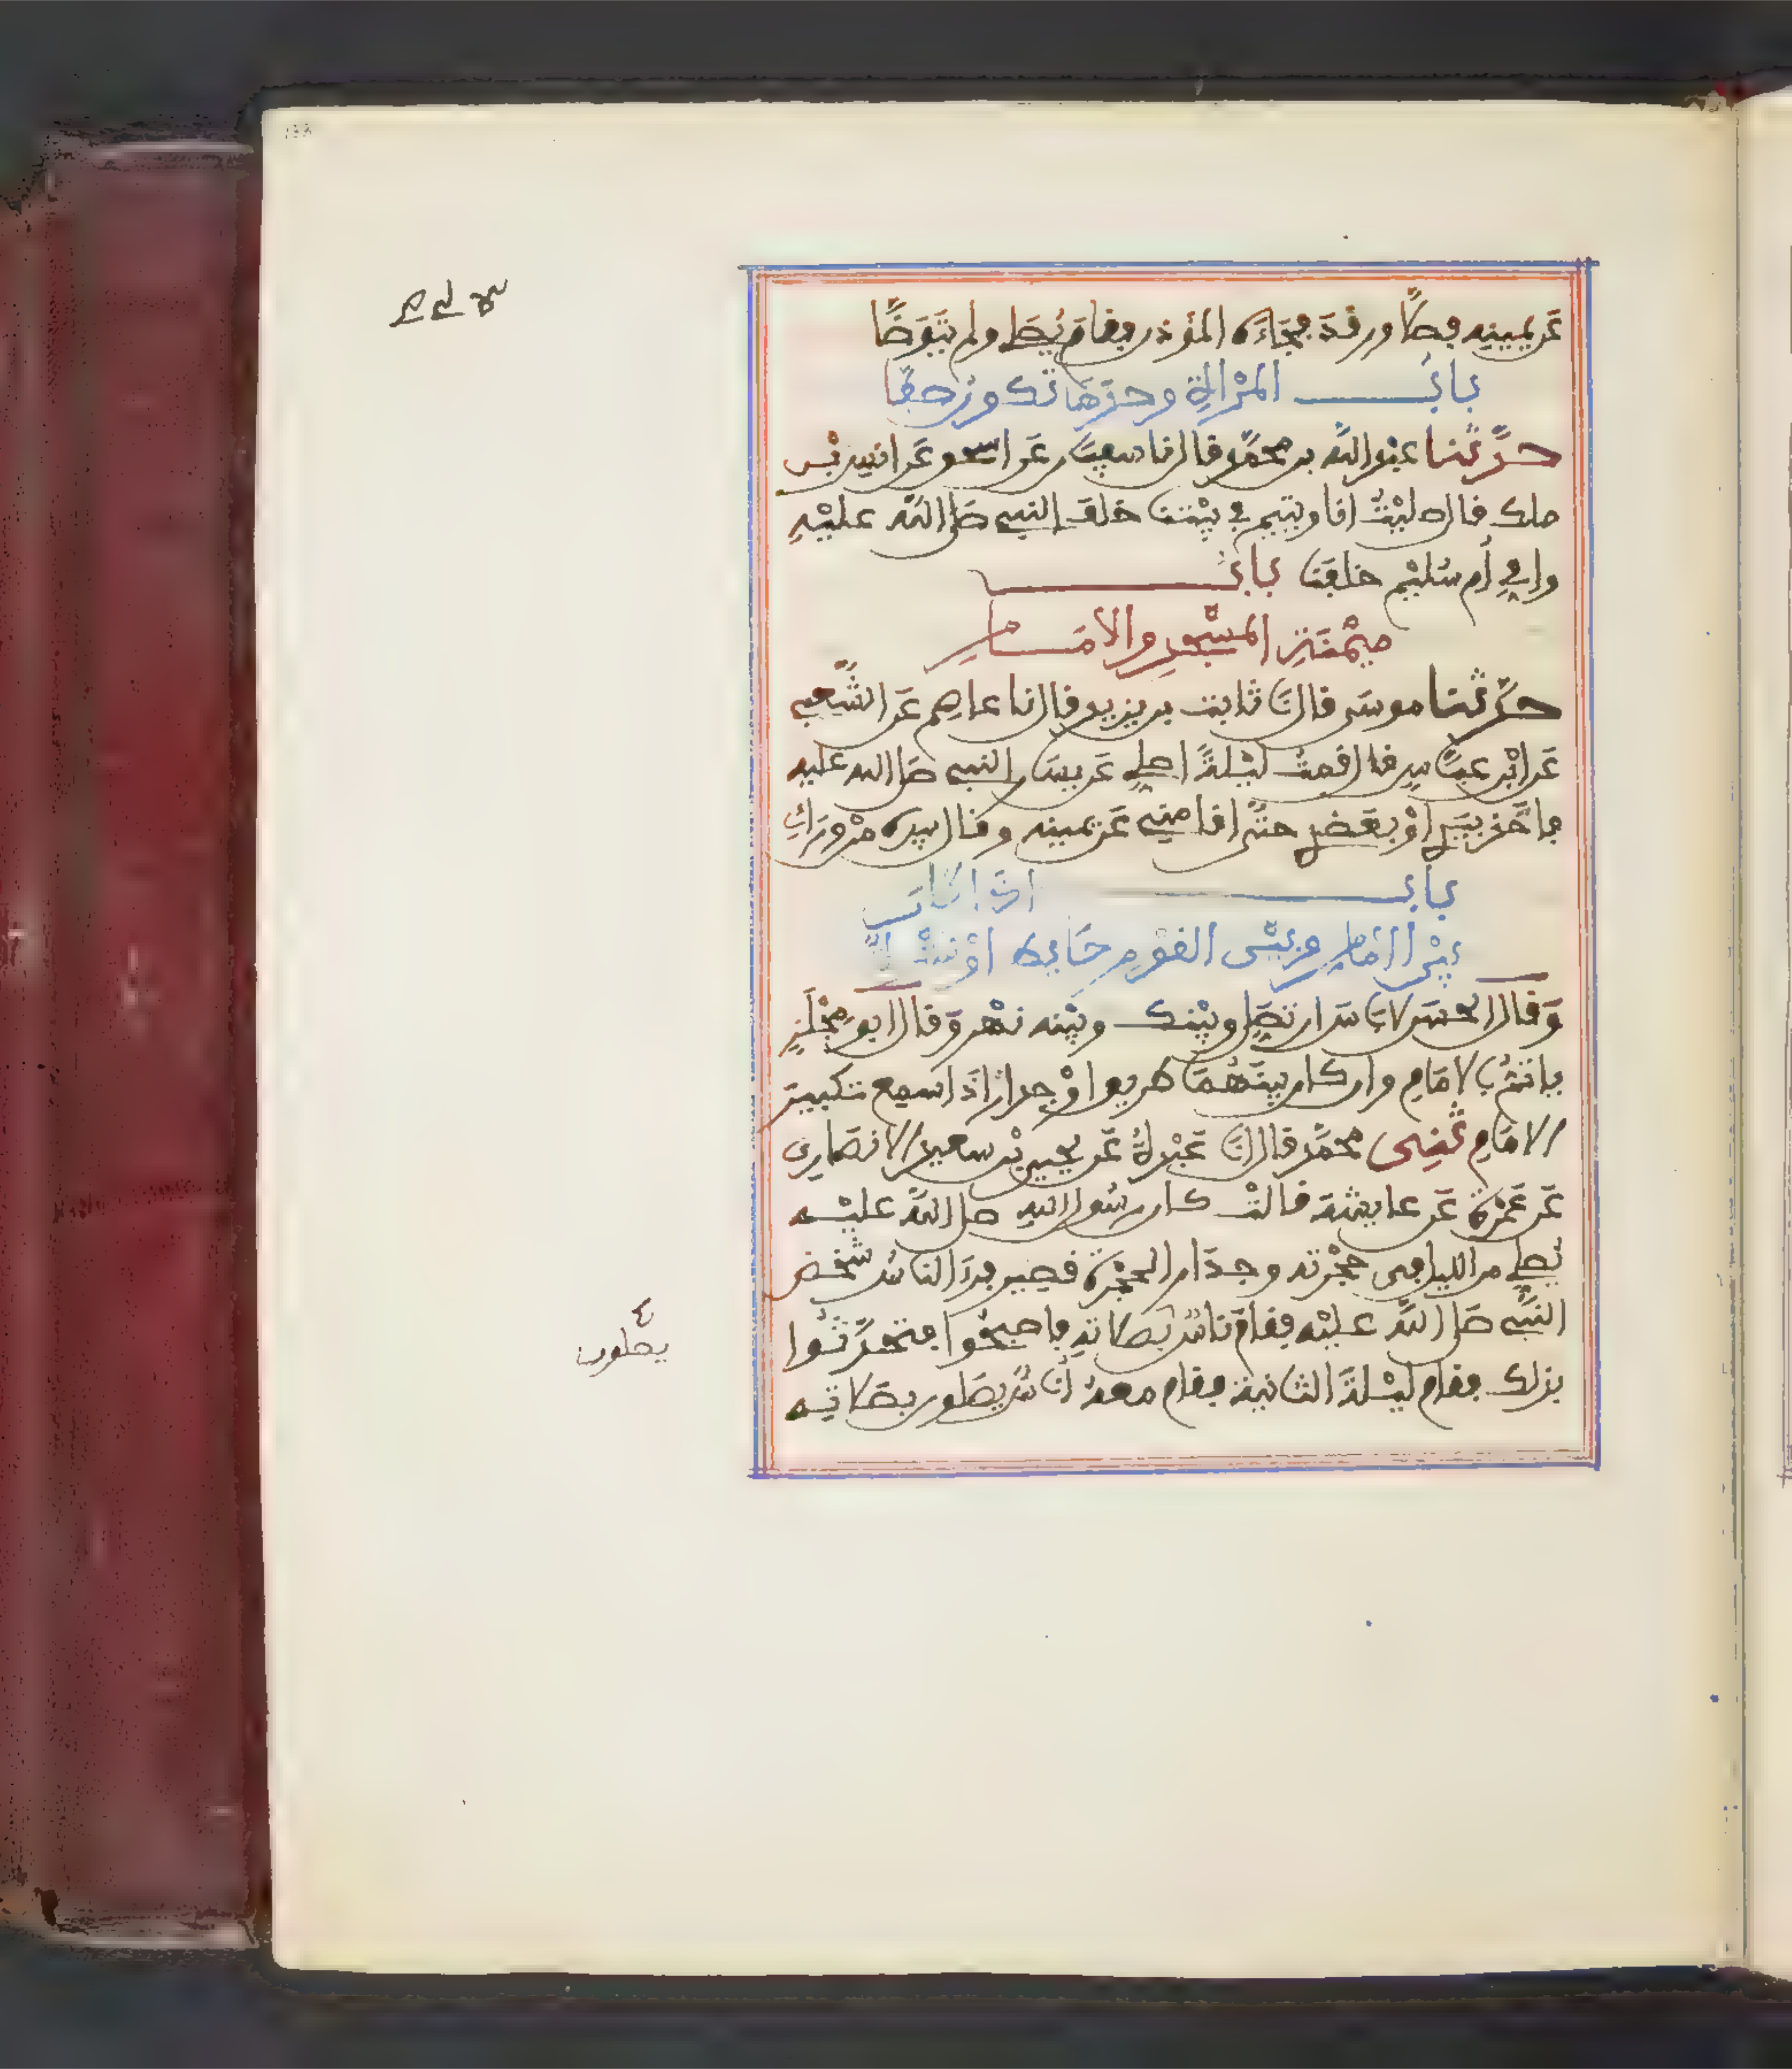 عَن يمينه فصلّى ورقدَ فجَاءَه المؤذن فقامَ يُصَلي ولم يَتَوَضّأ
بابُ المرْأةِ وحدَهَا تكون صفّا
حدّثنا عبْد الله بن محمّد قال نا سفيٰن عَن اسحٰو عَن انس بْن
ملك قال صليْتُ انا ويتيم في بيْتنا خلف النبي صَلى اللهُ عليْهِ
وامي أم سُليْم خلفَنا بابُ
ميْمَنَةِ المسْجدِ والامَام
حدّثنا موسَى قال نَا ثابت بن يزيد قال نا عاصِم عَن الشّعبي
عَن ابْن عبّاسٍ قال قمتُ ليْلةً اصلي عَن يسَار النبي صَلى الله عليه
فاخَذ بيَدِي اوْ بعَضُدي حتّى اقامني عَن يمينه وقال بيده مِنْ ورَاءِي
بابُ اذَا كَان
بيْن الامَام وبيْن القوْمِ حَايط اوْ سُتْرَة
وَقال الحسَن لا بَاسَ ان تصَلِّي وبيْنك وبيْنه نهْر وَقال ابو مِجْلَزٍ
ياتمّ بالامَامِ وان كان بيْنَهُمَا طريق اوْ جدار اذَا سمع تكبير
الامَامِ ثني محمّد قال نَا عَبْدةُ عَن يحيى بْن سعيد الانصَاري
عَن عَمْرَة عَن عايشة قالتْ كان رسُول اللهِ صلى اللهُ عليْه
يُصَلي من الليل في حجْرته وجدَار الحجْرَة قصير فرَأى الناسُ شخْص
النّبيّ صَلى اللهُ عليْه فقامَ نَاسٌ بصَلاتهِ فاصبحُوا فتحَدّثُوا
بذلك فقام ليْلةَ الثانية فقام معهُ أنَاسٌ يصَلون بصَلاتِه
يصلون